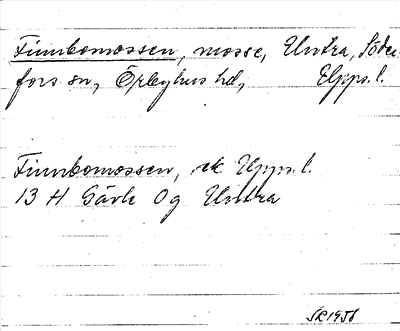 Finnbomossen, mosse, Untra, Söder
fors sn, Örbyhus hd, Upps. l.
Finnbomossen, ek Upps. l.
13 H Gävle 0 g Untra
SR 1956